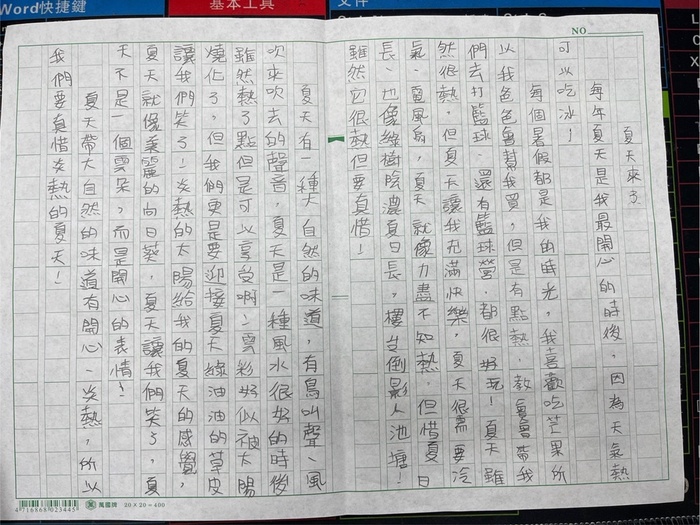 Word快捷鍵
基本工具
文件
NO
夏天來了
每年夏天是我最開心的時後,因為天氣熱
可以吃冰!
每個暑假都是我的時光,我喜歡吃芒果所
以我爸爸會幫我買,但是有點熱。教會會帶我
們去打籃球、還有籃球營、都很好玩!夏天雖
然很熱,但夏天讓我充滿快樂,夏天很需要冷
氣、電風扇,夏天就像力盡不知熱,但惜夏日
長、也像綠樹陰濃夏日長,樓台倒影入池塘!
雖然它很熱但要真惜!
夏天有一種大自然的味道,有鳥叫聲、風
吹來吹去的聲音,夏天是一種風水很好的時後
雖然熱了點但是可以享受啊!雲彩好似被太陽
燒化了,但我們更是要迎接夏天綠油油的草皮
讓我們笑了!炎熱的太陽給我的夏天的感覺,
夏天就像美麗的向日葵,夏天讓我們笑了,夏
天不是一個雲朵,而是開心的表情!
夏天帶大自然的味道有開心、炎熱,所以
我們要真惜炎熱的夏天!
4716868023445
萬國牌 20×20=400